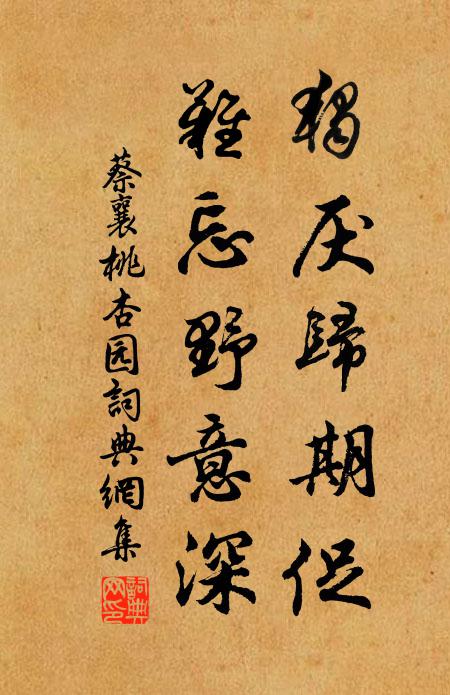 獨厌歸期促
難忘野意深
蔡襄桃杏园詞典網集
詞典網印